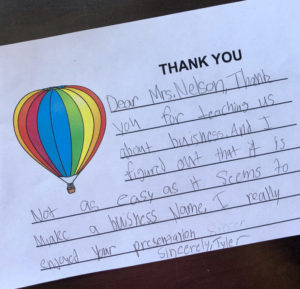 THANK YOU
Dear Mrs. Nelson, Thank
you for teaching us
about buisness. And I
figured out that it is
Not as easy as it seems to
Make a business Name. I really
enjoyed your presentation
Sincerely, Tyler